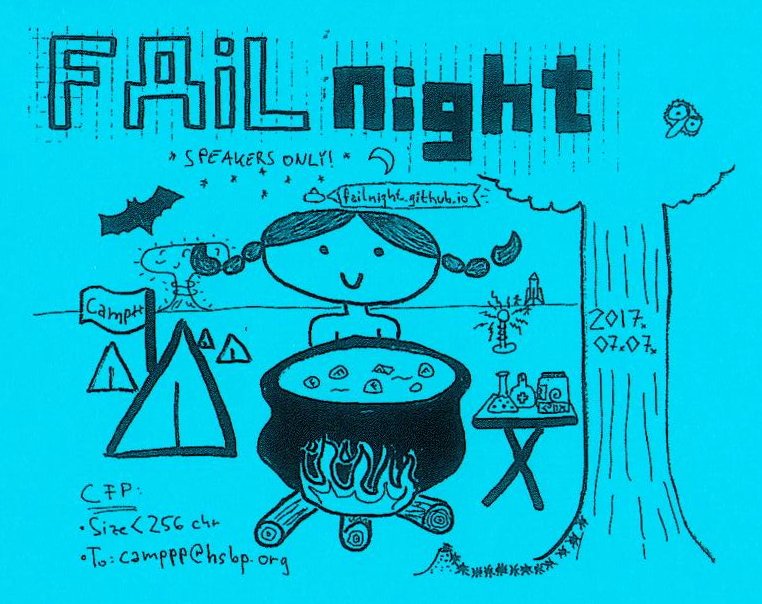 FAiL night
* SPEAKERS ONLY! *
failnight.github.io
Camp++
2017.
07.07.
CFP:
• Size < 256 chr
• To: camppp@hsbp.org